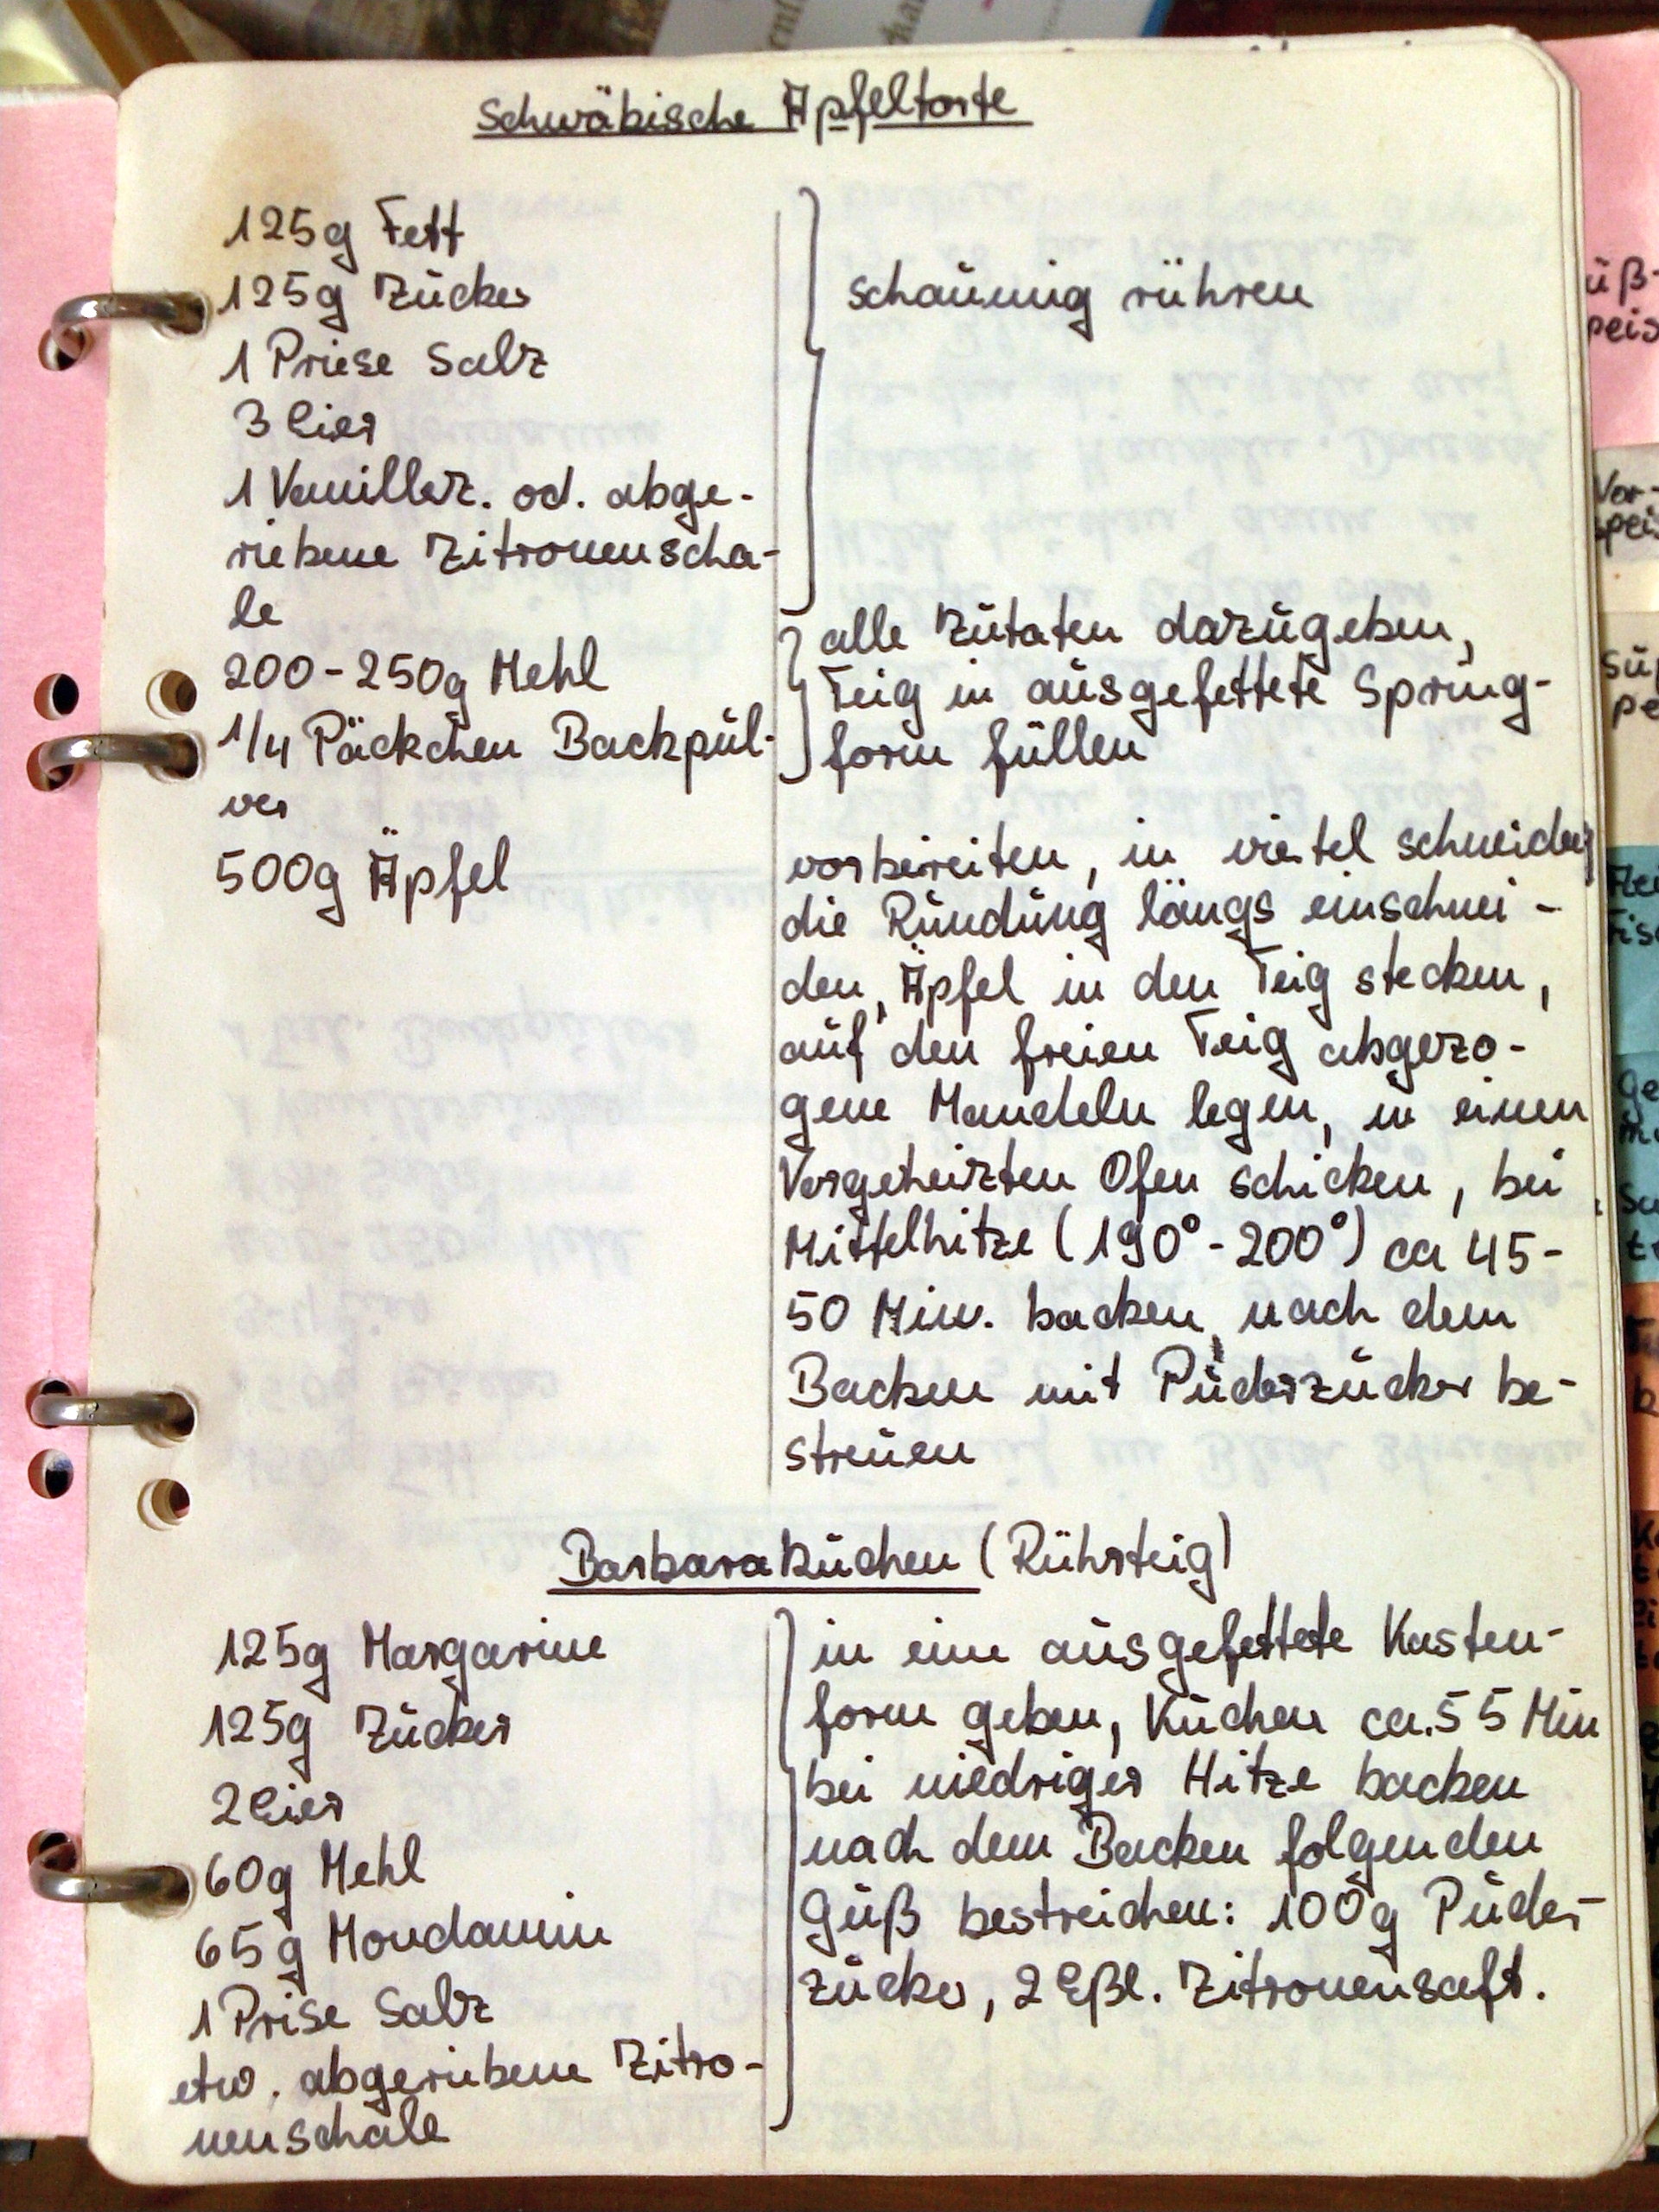 Schwäbische Äpfeltorte
125g Fett
125g Zucker
1 Priese Salz
3 Eier
1 Vanillez. od. abge-
riebene Zitronenscha-
le
schaumig rühren
200-250g Mehl
1/4 Päckchen Backpul-
ver
alle Zutaten dazugeben,
Teig in ausgefettete Spring-
form füllen
500g Äpfel
vorbereiten, in viertel schneiden
die Rundung längs einschnei-
den, Äpfel in den Teig stecken,
auf den freien Teig abgezo-
gene Mandeln legen, in einen
Vorgeheizten Ofen schicken, bei
Mittelhitze (190°-200°) ca 45-
50 Min. backen, nach dem
Backen mit Puderzucker be-
streuen
Barbarakuchen (Rührteig)
125g Margarine
125g Zucker
2 Eier
60g Mehl
65g Mondamin
1 Prise Salz
etw. abgeriebene Zitro-
nenschale
in eine ausgefettete Kasten-
form geben, Kuchen ca. 55 Min
bei niedriger Hitze backen
nach dem Backen folgenden
Guß bestreichen: 100g Puder-
zucker, 2 Eßl. Zitronensaft.
üß-
peis
Vor-
speis